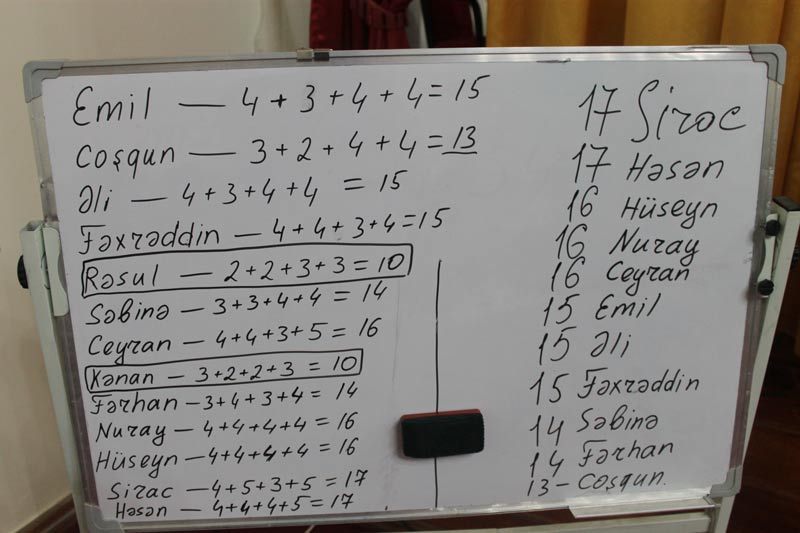 Emil — 4 + 3 + 4 + 4 = 15
Coşqun — 3 + 2 + 4 + 4 = 13
Əli — 4 + 3 + 4 + 4 = 15
Fəxrəddin — 4 + 4 + 3 + 4 = 15
Rəsul — 2 + 2 + 3 + 3 = 10
Səbinə — 3 + 3 + 4 + 4 = 14
Ceyran — 4 + 4 + 3 + 5 = 16
Kənan — 3 + 2 + 2 + 3 = 10
Fərhan — 3 + 4 + 3 + 4 = 14
Nuray — 4 + 4 + 4 + 4 = 16
Hüseyn — 4 + 4 + 4 + 4 = 16
Sirac — 4 + 5 + 3 + 5 = 17
Həsən — 4 + 4 + 4 + 5 = 17
17 Sirac
17 Həsən
16 Hüseyn
16 Nuray
16 Ceyran
15 Emil
15 Əli
15 Fəxrəddin
14 Səbinə
14 Fərhan
13 - Coşqun.